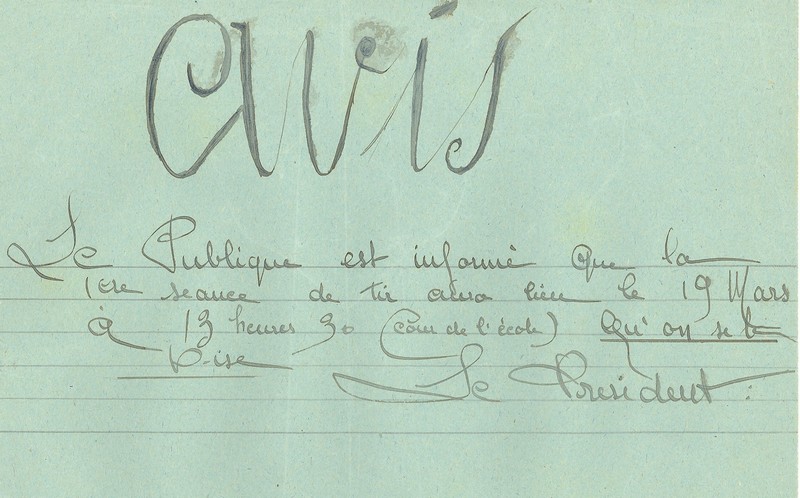 avis
Le Publique est informé que la
1ere seance de tir aura lieu le 19 Mars
à 13 heures 30 (Cour de l'école) Qu'on se le
dise
Le President.